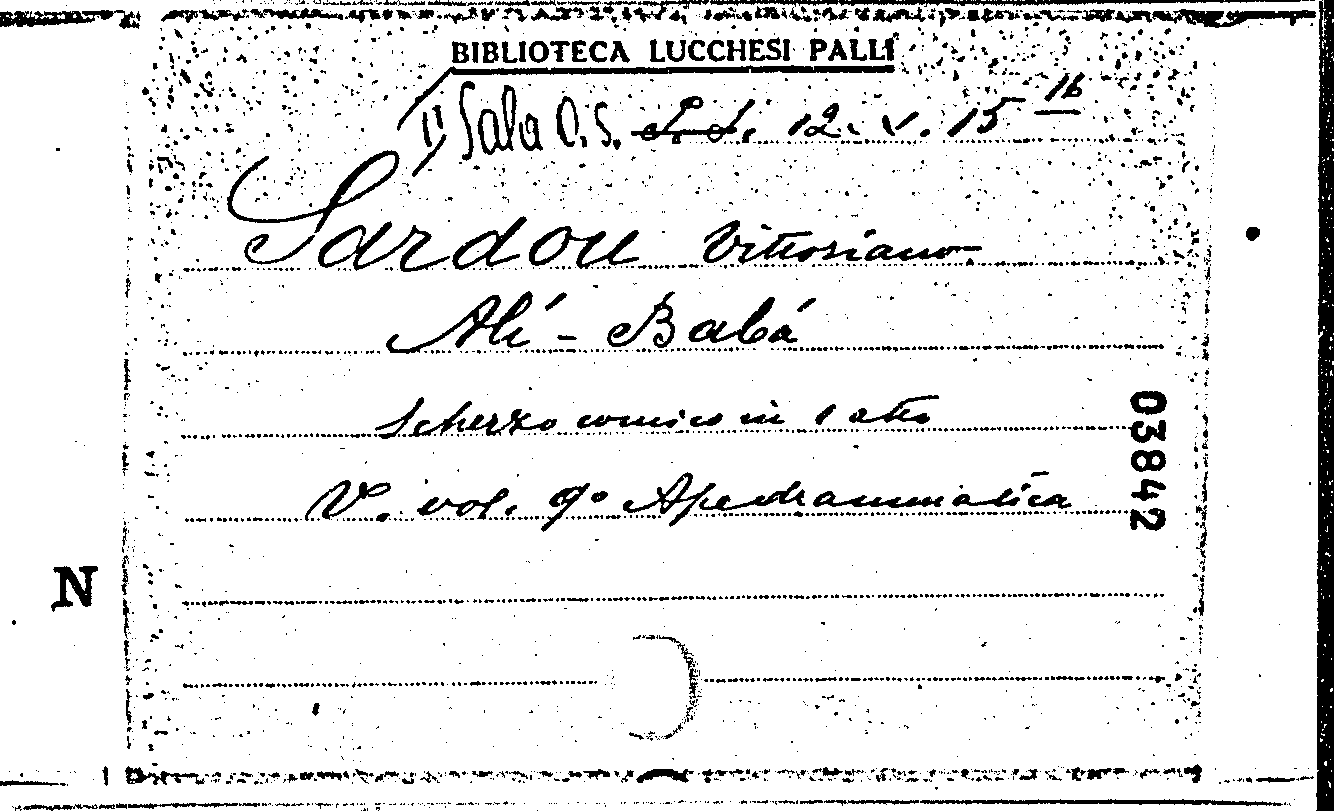 BIBLIOTECA LUCCHESI PALLI
IIª Sala O. S. S. S. 12. V. 15 16
Sardou Vittoriano
Alí - Babá
Scherzo comico in 1 atto
V. vol. 9º Ape drammatica
03842
N